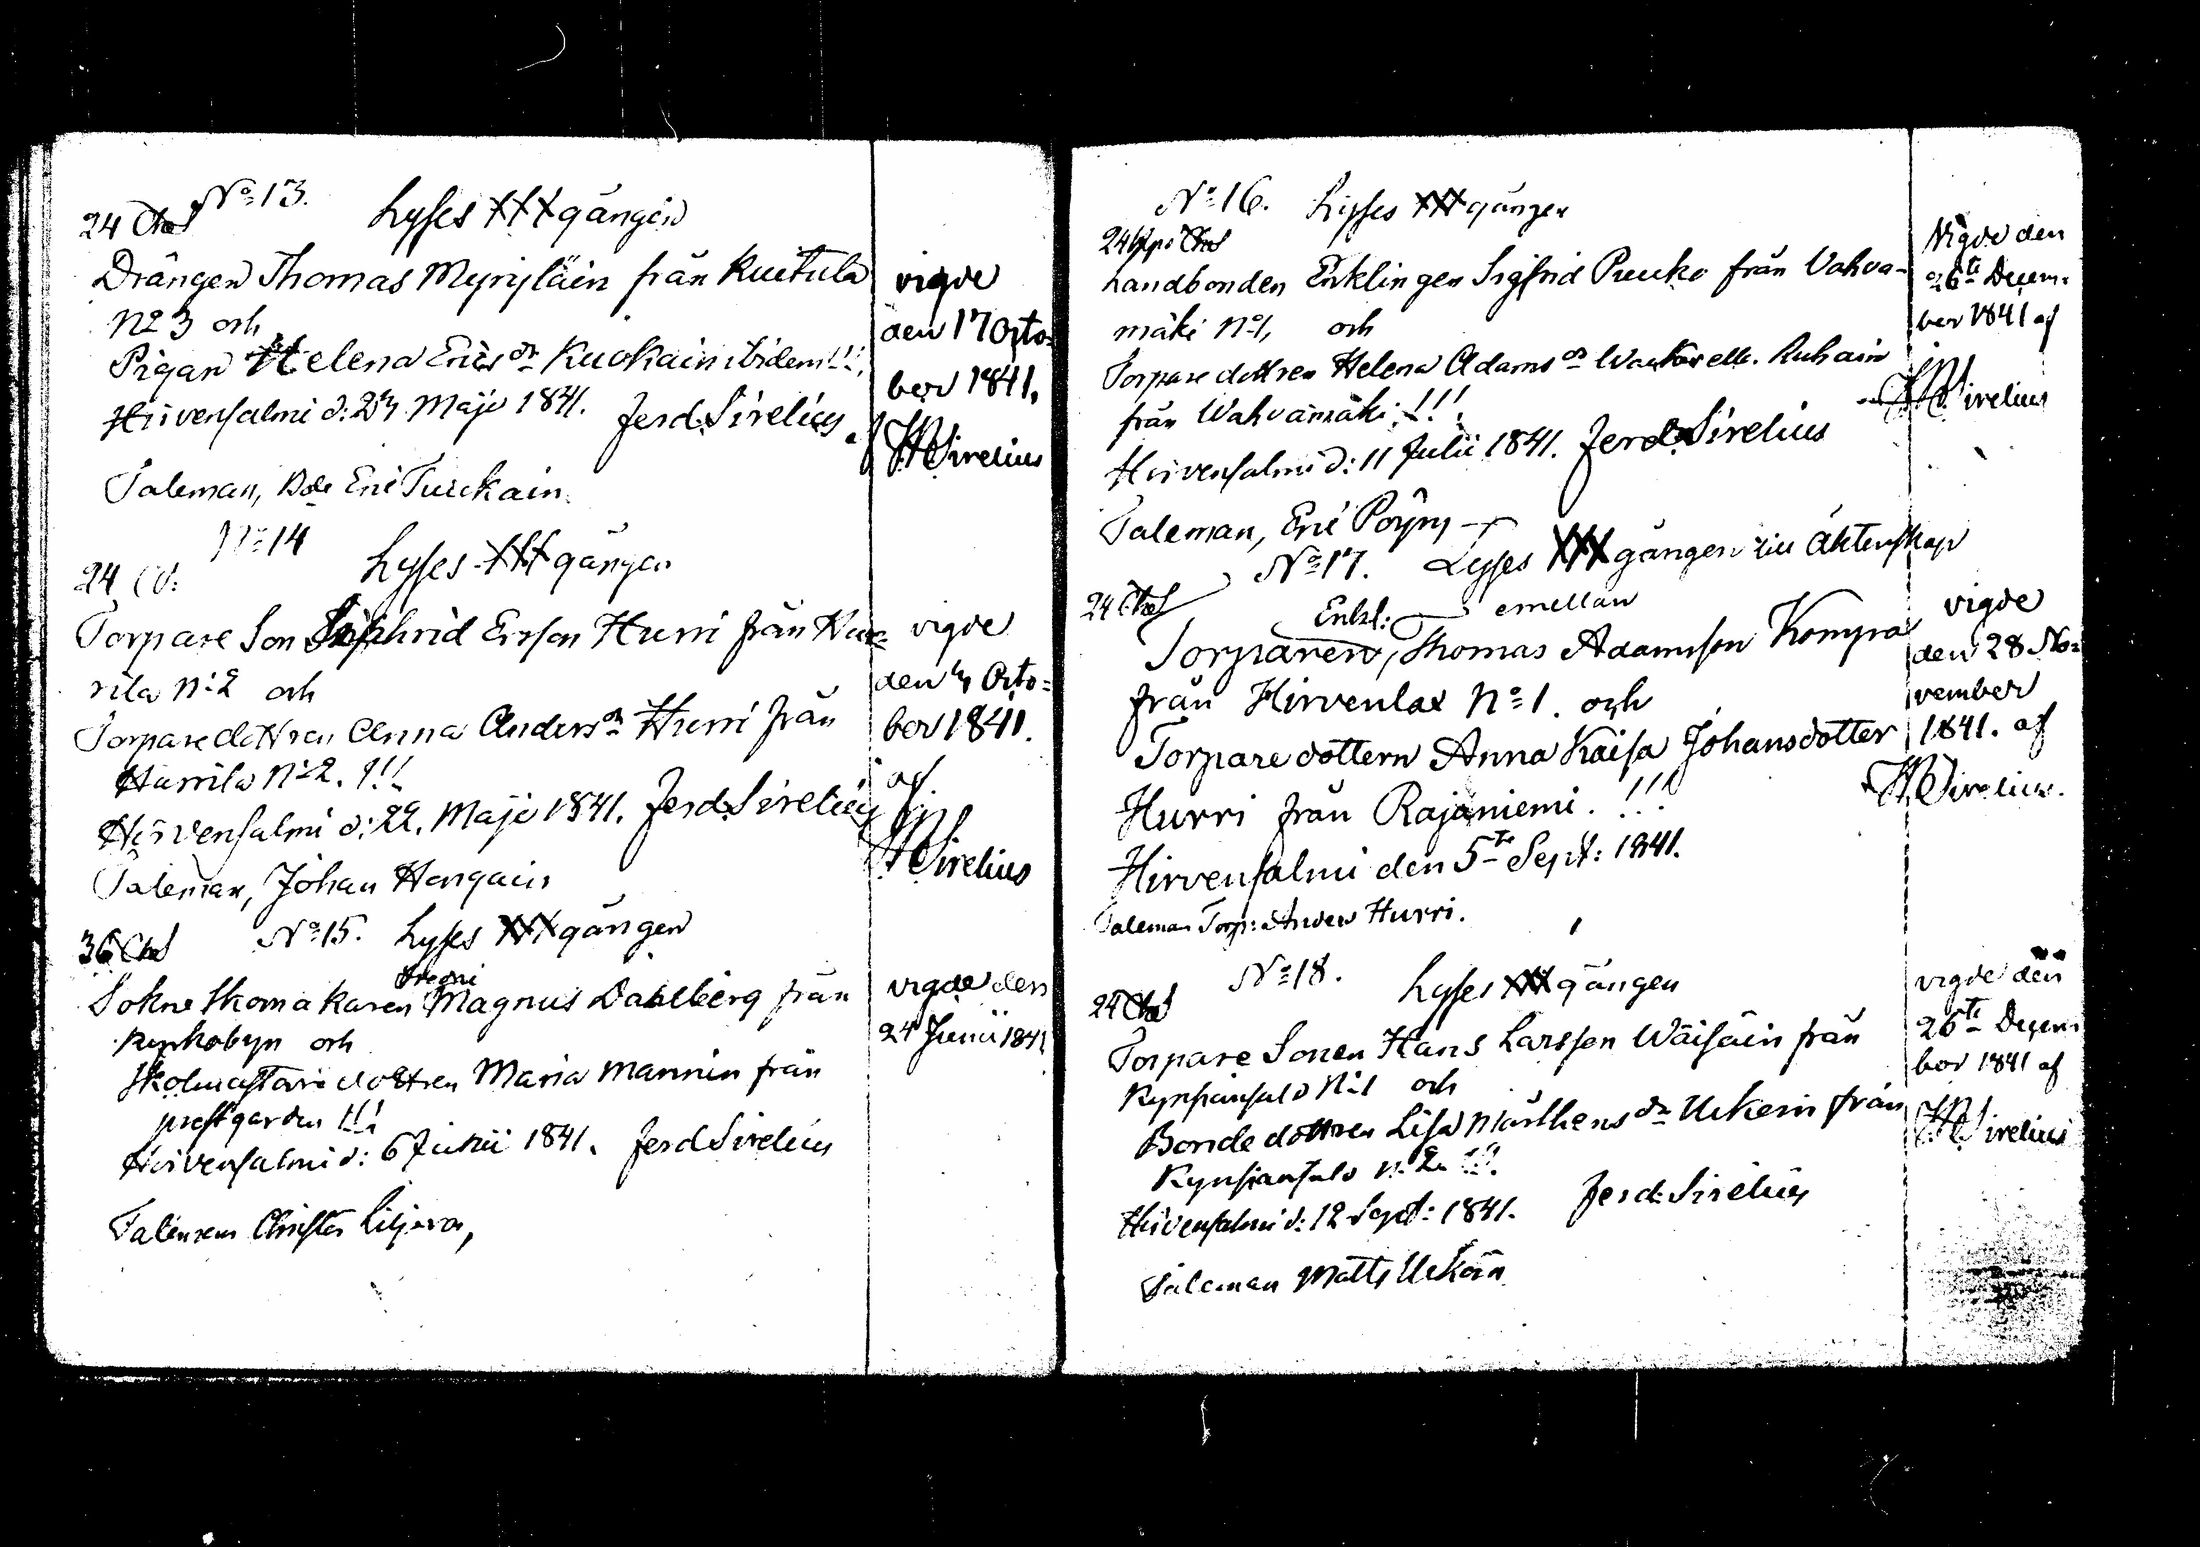 No 13. Lyses XXX gången
24
Drängen Thomas Myryläin från Kuitula
No 3 och
Pigan Helena Ericsdr Kuokain ibidem !!!
Hirvensalmi d: 23 Maji 1841. Ferd. Sirelius
Taleman, Bde Eric Turckain
vigde
den 17 Octo=
ber 1841.
af HSirelius
No 14 Lyses XXX gången
24
Torpare Son Sigfrid Ersson Hurri från Hur=
rila No 2 och
Torpare dottren Anna Andersdr Hurri från
Hurrila No 2. !!!
Hirvensalmi d: 22. Maji 1841. Ferd. Sirelius
Taleman, Johan Hongain
vigde
den 4 Octo=
ber 1841.
af
HSirelius
No 15. Lyses XXX gången
36
Sokne Skomakaren Magnus Dahlberg från
Kyrkobyn och
Skolmästare dottren Maria Mannin från
prestgården !!!
Hirvensalmi d: 6 Junii 1841. Ferd Sirelius
Taleman Christer Liljeroos,
vigde den
24 Junii 1841
No 16. Lyses XXX gången
24
Landbonden Enklingen Sigfrid Puuko från Vahva-
mäki No 1, och
Torpare dottren Helena Adamsdr ell. Ruhain
från Wahvamäki. !!!
Hirvensalmi d: 11 Julii 1841. Ferd. Sirelius
Taleman, Eric Pöyry
Vigde den
26te Decem-
ber 1841 af
HSirelius
No 17. Lyses XXX gången till Äktenskap
24 emellan
Enkl:
Torparen, Thomas Adamsson Kompa
från Hirvenlax No 1. och
Torpare dottern Anna Kaisa Johansdotter
Hurri från Rajaniemi. !!!
Hirvensalmi den 5te Sept: 1841.
Taleman Torp: Anders Hurri.
vigde
den 28 No=
vember
1841. af
HSirelius.
No 18. Lyses XXX gången
24
Torpare Sonen Hans Larsson Wäisäin från
Kynsiänsalo No 1 och
Bonde dottren Lisa Mårthensdr Ukkoin från
Kynsiansalo No 2. !!!
Hirvensalmi d: 12 Sept: 1841. Ferd. Sirelius
Taleman Matts Ukkoin
vigde den
26te Decem-
ber 1841 af
HSirelius